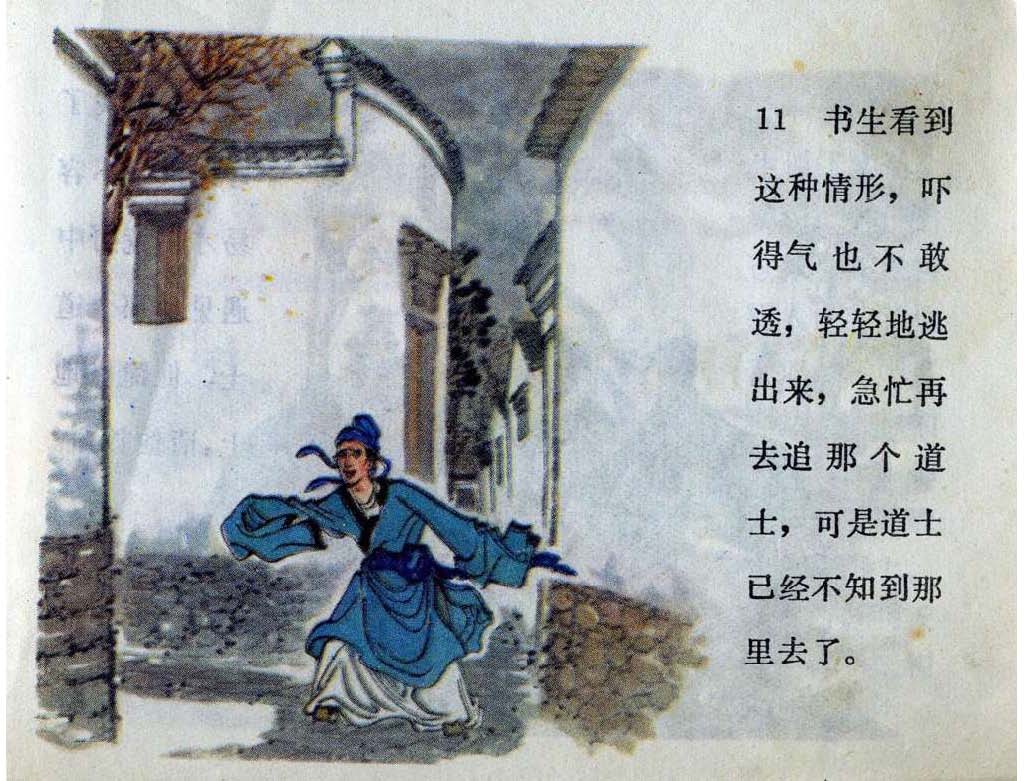 11 书生看到
这种情形，吓
得气也不敢
透，轻轻地逃
出来，急忙再
去追那个道
士，可是道士
已经不知到那
里去了。